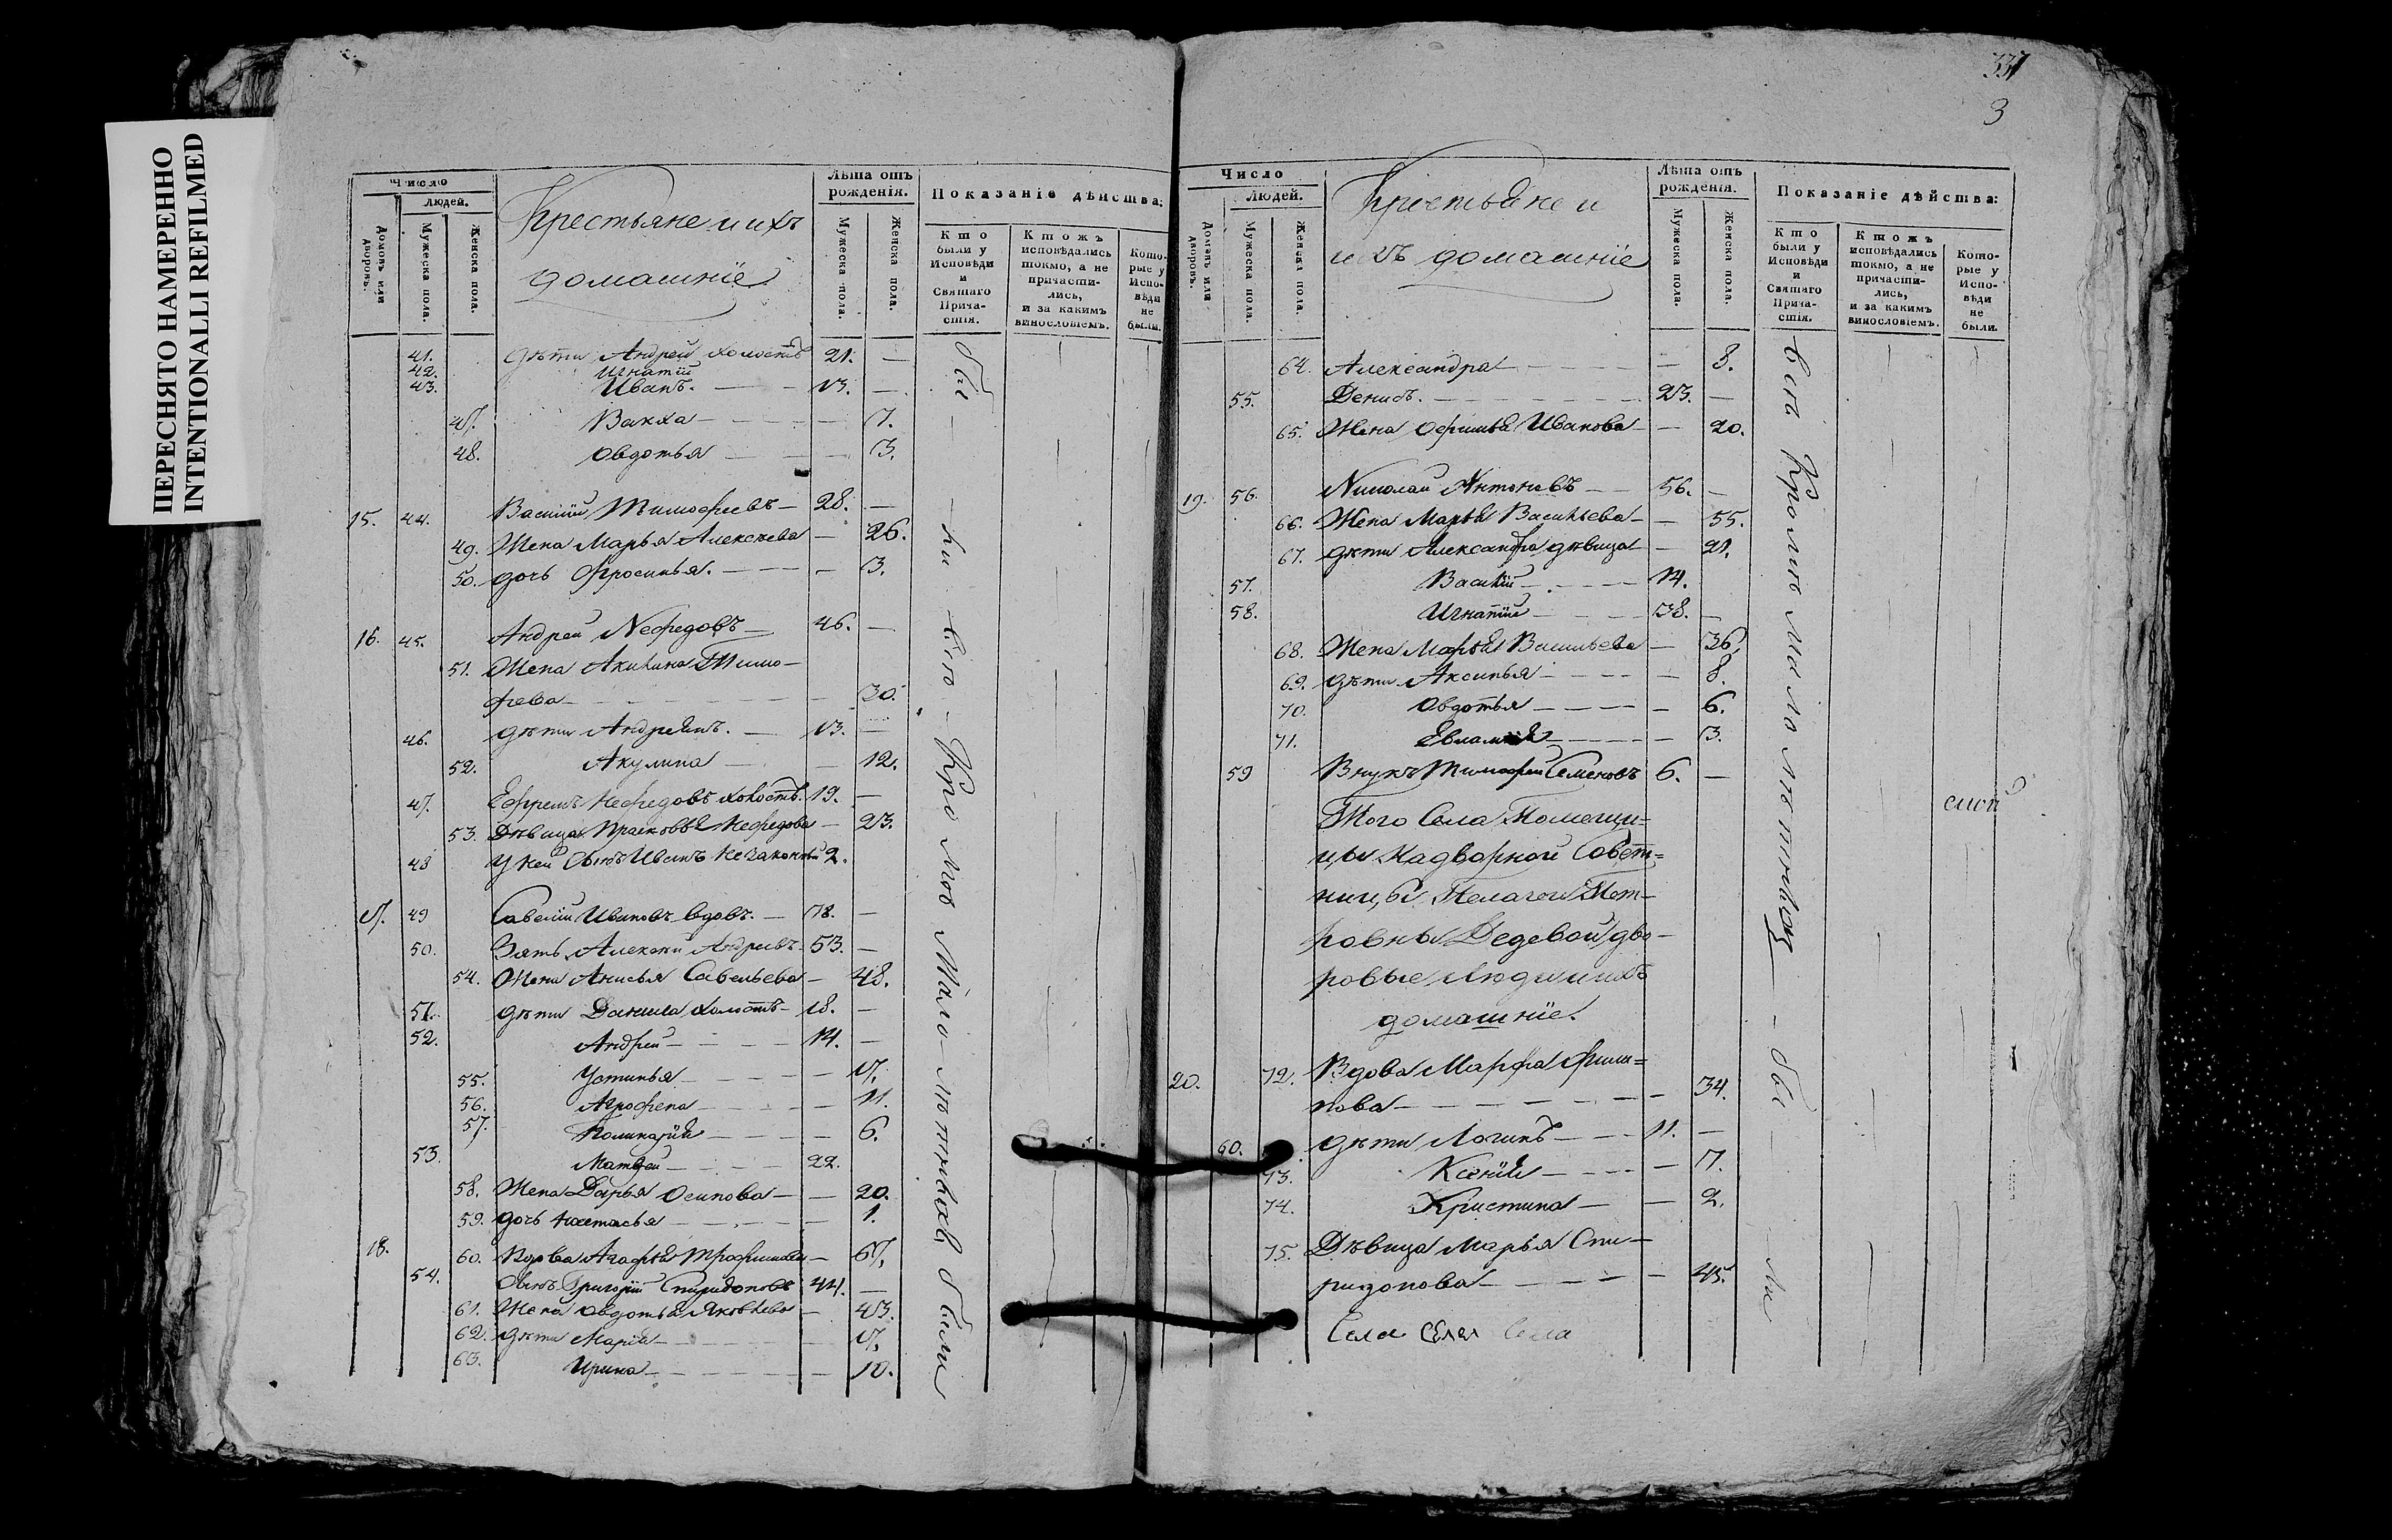 ПЕРЕСНЯТО НАМЕРЕННО
INTENTIONALLI REFILMED
Число
людей.
Домовъ или дворовъ.
Мужеска пола.
Женска пола.
Крестьяне и ихъ
домашніе
Лѣта отъ
рожденія.
Мужеска пола.
Женска пола.
Показаніе дѣйства:
Кто
были у
Исповѣди
и
Святаго
Прича-
стія.
Ктожъ
исповѣдались
токмо, а не
причасти-
лись,
и за какимъ
винословіемъ.
Кото-
рые у
Испо-
вѣди
не
были.
41. дѣти Андрей холостъ 21. —
42. Игнатій
43. Иванъ. — 13. —
47. Вакха — 7.
48. Овдотья — 3.
15. 44. Василій Тимофеевъ — 28. —
49. Жена Марья Алексѣева — 26.
50. дочь Фросинья. — 3.
16. 45. Андрей Нефедовъ — 46. —
51. Жена Акилина Тимо-
феева — 30.
46. дѣти Андреянъ. — 13. —
52. Акулина — 12.
47. Ефремъ Нефедовъ холостъ. 19. —
53. Дѣвица Прасковья Нефедова — 23.
48 У ней сынъ Иванъ незаконный 2.
17. 49 Савелій Ивановъ вдовъ. — 78. —
50. Зять Алексѣй Андреевъ — 53. —
54. Жена Анисья Савельева — 48.
51. дѣти Данила холостъ — 18. —
52. Андрей — 14. —
55. Устинья — 17.
56. Агрофена — 11.
57. — 6.
53. Матвей — 22.
58. Жена Дарья Осипова — 20.
59. дочь Настасья — 1.
18. 60. Вдова Агафья Трофимова — 67.
54. Сынъ Григорій Спиридоновъ 44. —
61. Жена Овдотья Яковлева — 43.
62. дѣти Марія — 17.
63. Ирина — 10.
бы — ли — вѣ
были
331
3
Число
Людей.
Домовъ или дворовъ.
Мужеска пола.
Женска пола.
Крестьяне и
ихъ домашніе
Лѣта отъ
рожденія.
Мужеска пола.
Женска пола.
Показаніе дѣйства:
Кто
были у
Исповѣди
и
Святаго
Прича-
стія.
Ктожъ
исповѣдались
токмо, а не
причасти-
лись,
и за какимъ
винословіемъ.
Кото-
рые у
Испо-
вѣди
не
были.
64. Александра — 8.
55. Денисъ. — 23. —
65. Жена Офимья Иванова — 20.
19. 56. Николай Антоновъ — 56. —
66. Жена Марья Васильева — 55.
67. дѣти Александра дѣвица — 21.
57. Василій — 14.
58. Игнатій — 38. —
68. Жена Марья Васильева — 36.
69. дѣти Аксинья — 8.
70. Овдотья — 6.
71. — 3.
59 Внукъ Тимофей Семеновъ 6. —
Того Села Помещи=
цы Надворной Совѣт=
ницы Пелагеи Пет-
ровны Дедевой дво-
ровые люди и ихъ
домашніе.
20. 72. Вдова Марфа Фили=
пова — 34.
60. дѣти Логинъ — 11. —
73. Ксенія — 7.
74. Христина — 2.
75. Дѣвица Марья Спи-
ридонова — 45.
Села Села Села
кромѣ малолѣтныхъ — бы — ли